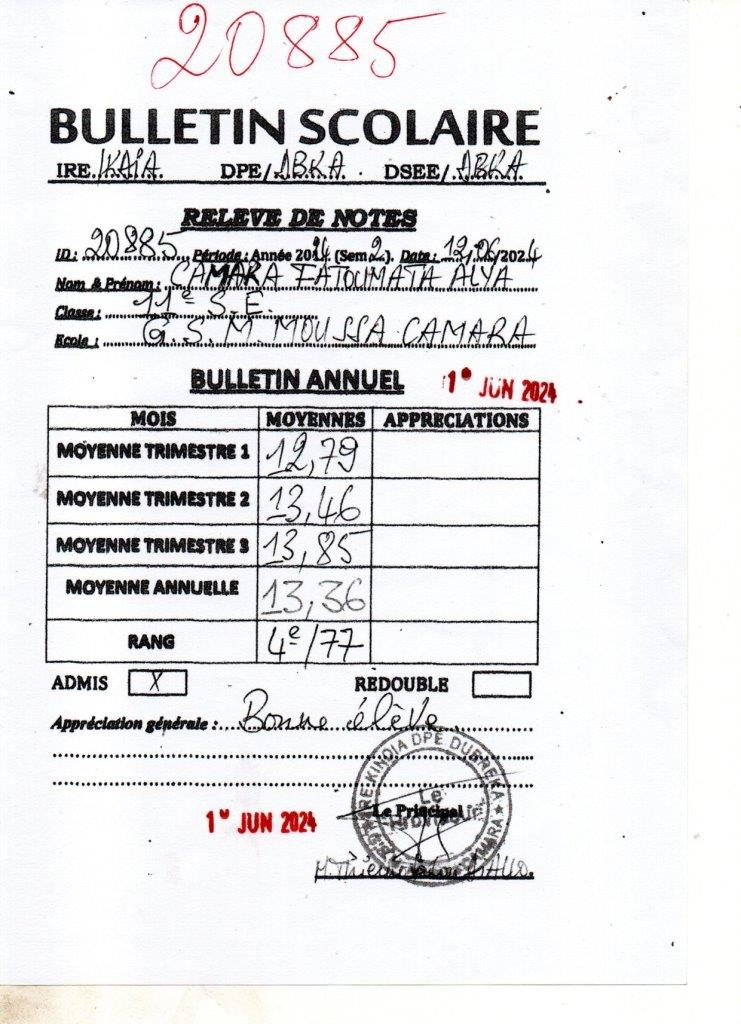 20885
BULLETIN SCOLAIRE
IRE/KAIA. DPE/DBKA. DSEE/DBKA.
RELEVE DE NOTES
ID: 20885 Période: Année 2024 (Sem 2). Date: 12/06/2024
Nom & Prénom: CAMARA FATOUMATA ALYA
Classe: 11e S.E.
Ecole: G.S.M. MOUSSA CAMARA
BULLETIN ANNUEL
1* JUN 2024
MOIS MOYENNES APPRECIATIONS
MOYENNE TRIMESTRE 1 12,79
MOYENNE TRIMESTRE 2 13,46
MOYENNE TRIMESTRE 3 13,85
MOYENNE ANNUELLE 13,36
RANG 4e/77
ADMIS X REDOUBLE
Appréciation générale: Bonne élève
IRE KINDIA DPE DUBREKA
Le Principal
CAMARA
JUN 2024